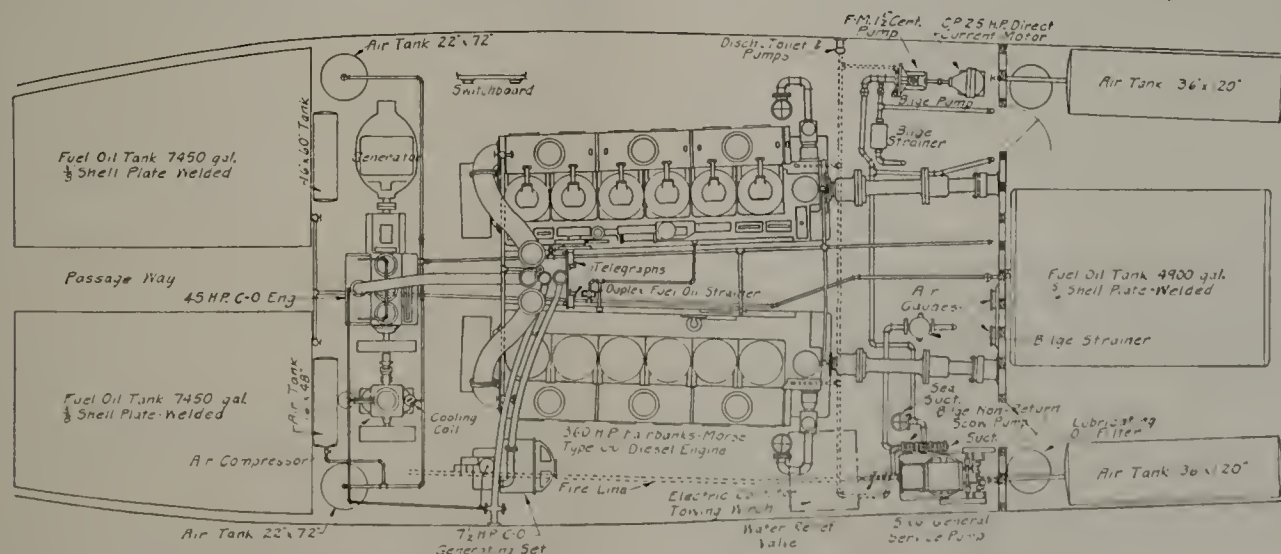 Air Tank 22"x 72"
Switchboard
Disch. Toilet &
Pumps
F-M. 1½" Cent.
Pump
C.P. 25 H.P. Direct
Current Motor
Air Tank 36"x 20"
Bilge Pump
Bilge
Strainer
Fuel Oil Tank 7450 gal.
Shell Plate Welded
16"x 60" Tank
Generator
Passage Way
45 H.P. C-O Eng
Telegraphs
Duplex Fuel Oil Strainer
Air
Gauges
Fuel Oil Tank 4900 gal.
Shell Plate-Welded
Bilge Strainer
Fuel Oil Tank 7450 gal.
Shell Plate-Welded
Air Tank
48"
Cooling
Coil
Air Compressor
360 H.P. Fairbanks-Morse
Type Diesel Engine
Sea
Suct.
Bilge Non-Return
Scow Pump
Suct.
Lubricating
Filter
Air Tank 120"
Fire Line
Electric
Towing Winch
Water Relief
Valve
General
Service Pump
Air Tank 22"x 72"
7½ H.P. C-O
Generating Set